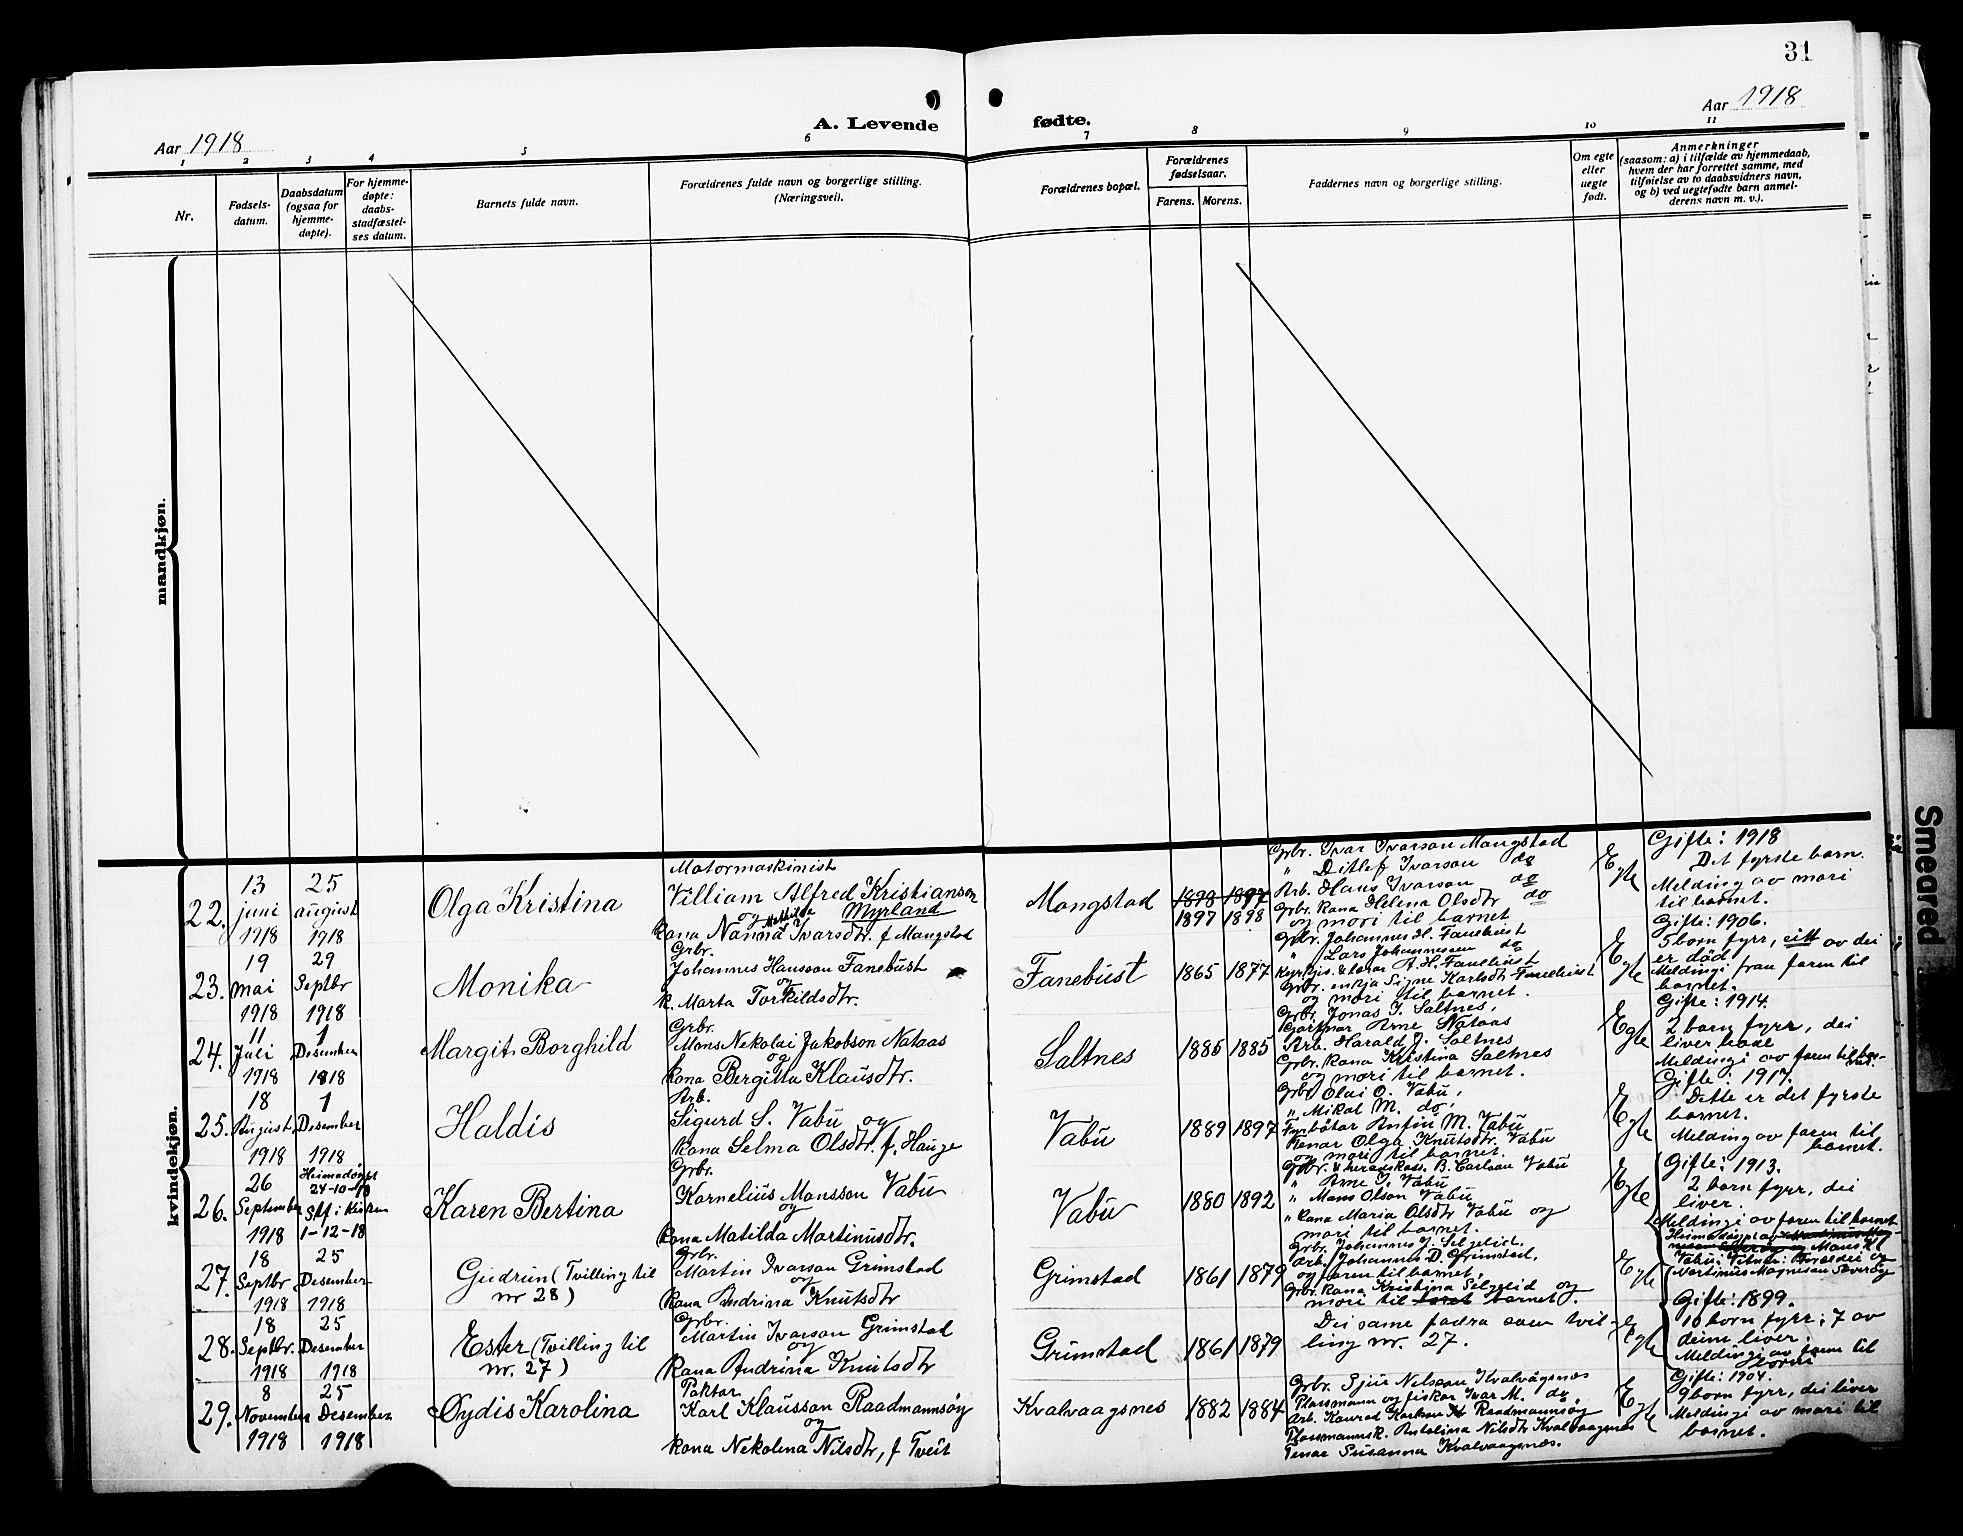 31
Aar 1918
A. Levende
fødte.
Aar 1918
1 2 3 4 5 6 7 8 9 10 11
Nr.
Fødsels-
datum.
Daabsdatum
(ogsaa for
hjemme-
døpte).
For hjemme-
døpte:
daabs-
stadfæstel-
ses datum.
Barnets fulde navn.
Forældrenes fulde navn og borgerlige stilling.
(Næringsvei).
Forældrenes bopæl.
Forældrenes
fødselsaar.
Farens. Morens.
Faddernes navn og borgerlige stilling.
Om egte
eller
uegte
født.
Anmerkninger
(saasom: a) i tilfælde av hjemmedaab,
hvem der har forrettet samme, med
tilføielse av to daabsvidners navn,
og b) ved uegtefødte barn anmel-
derens navn m. v.).
mandkjøn.
kvindekjøn.
22.
13
juni
1918
25
august
1918
Olga Kristina
Motormaskinist
Villiam Alfred Kristianson
og Myrland
Mathilde
kona Nanna Ivarsdtr. f Mangstad
Mangstad
1898 1897
1897 1898
Grbr. Ivar Ivarson Mangstad
" Ditlef Ivarson do
Arb. Hans Ivarson do
Grbr. kona Helena Olsdtr do
og mori til barnet
Egte
Gifte: 1918
Det fyrste barn.
Melding av mori
til barnet.
23.
19
mai
1918
29
Septbr
1918
Monika
Grbr.
Johannes Hansson Fanebust
og
k. Marta Torkildsdtr.
Fanebust
1865 1877
Grbr. Johannes H. Fanebust
" Lars Johannessen do
A. H. Fanebust
Grbr. enkja Signe Karlsdtr Fanebust
og mori til barnet.
Egte
Gifte: 1906.
5 born fyrr, eitt av dei
er död.
Meldingi fraa faren til
barnet.
24.
11
Juli
1918
1
Desember
1918
Margit Borghild
Grbr.
Mons Nekolai Jakobson Nataas
og
kona Bergitta Klausdtr.
Saltnes
1885 1885
Grbr. Jonas J. Saltnes,
Gartnar Arne Nataas
Arb. Harald J. Saltnes
Grbr. kona Kristina Saltnes
og mori til barnet.
Egte
Gifte: 1914.
2 born fyrr, dei
liver baae
Meldingi av faren til bar-
net.
25.
18
August
1918
1
Desember
1918
Haldis
Arb.
Sigurd S. Vabu og
kona Selma Olsdtr. f. Hauge
Vabu
1889 1897
Grbr Olai O. Vabu,
" Mikal M. do,
Fyrbötar Anfin M. Vabu
Tenar Olga Knutsdtr. Vabu
og mori til barnet.
Egte
Gifte: 1917.
Dette er det fyrste
barnet.
Melding av faren til
barnet.
26.
26
September
1918
Heimedöypt
24-10-18
Stf. i kirken
1-12-18
Karen Bertina
Grbr.
Kornelius Monsson Vabu
og
kona Matilda Martinusdtr.
Vabu
1880 1892
Grbr. & heradskass. B. Carlson Vabu
" Arne I. Vabu
" Mons Olson Vabu
" kona Maria Olsdtr Vabu og
mori til barnet.
Egte
Gifte: 1913.
2 born fyrr, dei
liver.
Meldingi av faren til barnet
Heimedöypt av
Mons K.
Vabu. Vitne: Foreldri og
Martinus Magneson Severöy
27.
18
Septbr
1918
25
Desember
1918
Gudrun (Tvilling til
nr 28)
Grbr.
Martin Ivarson Grimstad
og
kona Andrina Knutsdtr
Grimstad
1861 1879
Grbr. Johannes J. Selgelid.
Arb. Johannes D. Grimstad,
og faren til barnet,
Grbr. kona Kristina Selgelid og
mori til barnet.
Egte
28.
18
Septbr.
1918
25
Desember
1918
Ester (Tvilling til
nr. 27)
Grbr.
Martin Ivarson Grimstad
og
kona Andrina Knutsdtr
Grimstad
1861 1879
Dei same fadra som tvil-
ling nr. 27.
Egte
Gifte: 1899.
10 born fyrr; 7 av
deim liver.
Meldingi av faren til
borni
29.
8
November
1918
25
Desember
1918
Øydis Karolina
Paktar
Karl Klausson Raadmannsöy
og
kona Nekolina Nilsdtr, f Tveit
Kvalvaagsnes
1882 1884
Grbr. Sjur Nilsson Kvalvågsnes
Plassmann og fiskar Ivar M. do
Arb. Konrad Karlson Raadmannsöy
Plassmannsk. Antolina Nilsdtr Kvalvaagsnes
Tenar Susanna Kvalvaagsnes.
Egte
Gifte: 1904.
9 born fyrr, dei liver
Meldingi av mori til
barnet.
Smeared